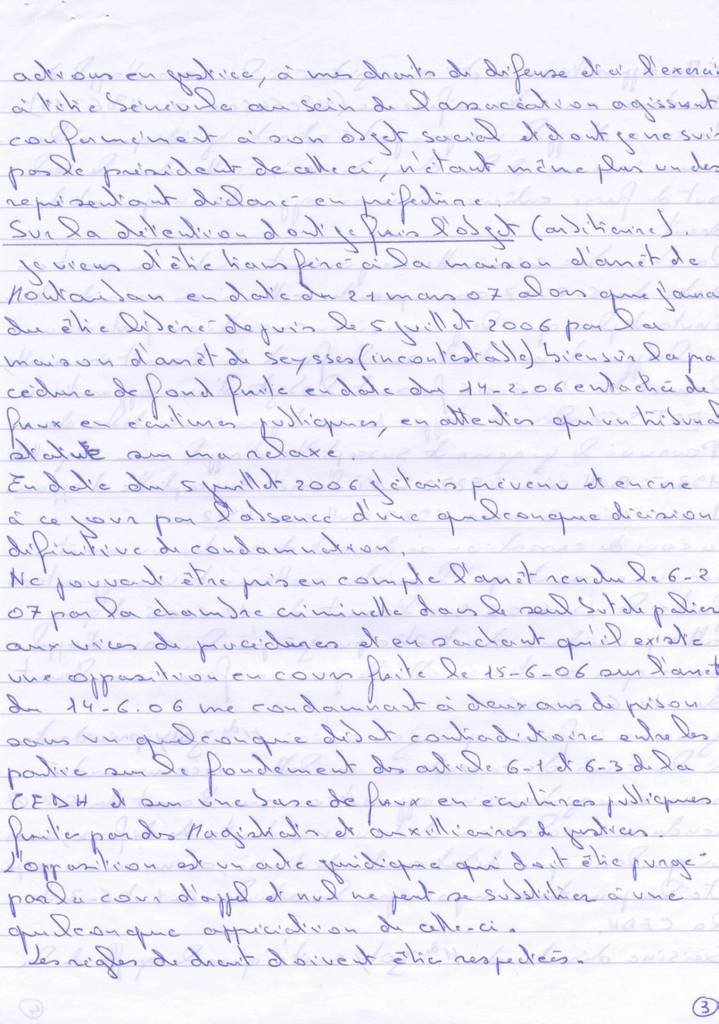 actions en justice, à mes droits de défense et à l'exerci
à titre bénévole au sein de l'association agissant
conformément à son objet social et dont je ne suis
pas le président de celle ci, n'étant même plus un des
représentant déclaré en préfecture.
Sur la détention dont je fais l'objet (arbitraire)
Je viens d'être transféré à la maison d'arrêt de
Montauban en date du 21 mars 07 alors que j'aurai
du être libéré depuis le 5 juillet 2006 par la
maison d'arrêt de Seysses (incontestable) bien sur la pro
cédure de fond faite en date du 14-2-06 entachée de
faux en écritures publiques, en attentes qu'un tribunal
statue sur ma relaxe.
En date du 5 juillet 2006 j'étais prévenu et encore
à ce jour par l'absence d'une quelconque décision
définitive de condamnation.
Ne pouvant être pris en compte l'arrêt rendu le 6-2
07 par la chambre criminelle dans le seul but de palier
aux vices de procédures et en sachant qu'il existe
une opposition en cours faite le 15-6-06 sur l'arrêt
du 14-6.06 me condamnant à deux ans de prison
sans un quelconque débat contradictoire entre les
partie sur le fondement des article 6-1 et 6-3 de la
CEDH et sur une base de faux en écritures publiques
faites par des Magistrats et auxilliaires de justices.
L'opposition est un acte juridique qui doit être purgé
par la cour d'appel et nul ne peut se substituer à une
quelconque appréciation de celle-ci.
Les règles de droit doivent être respectées.
3